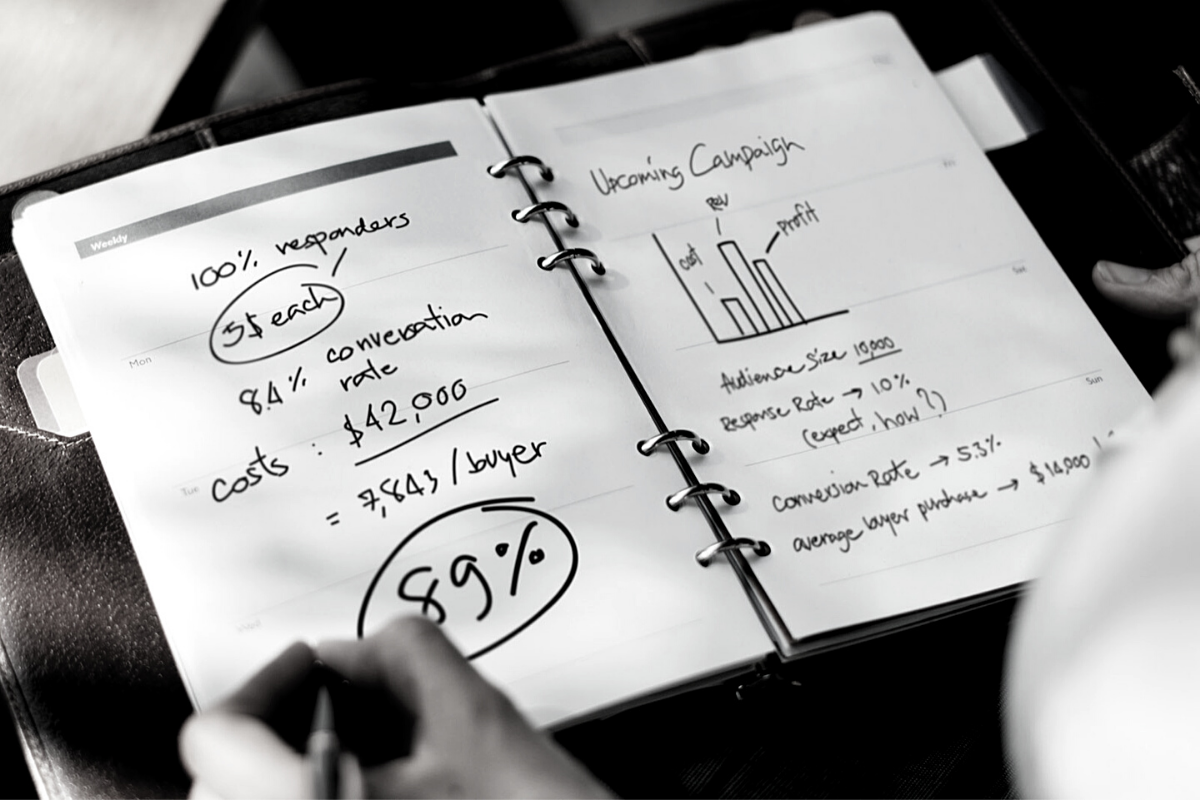 Weekly
100% responders
5$ each
Mon
8.4% conversation
rate
Tue
costs : $42,000
= 7,843 / buyer
89%
Wed
Upcoming Campaign
Rev
cost
profit
Fri
Sat
Audience Size 10,000
Response Rate → 1.0%
(expect, how?)
Sun
Conversion Rate → 5.3%
average buyer purchase → $14,000